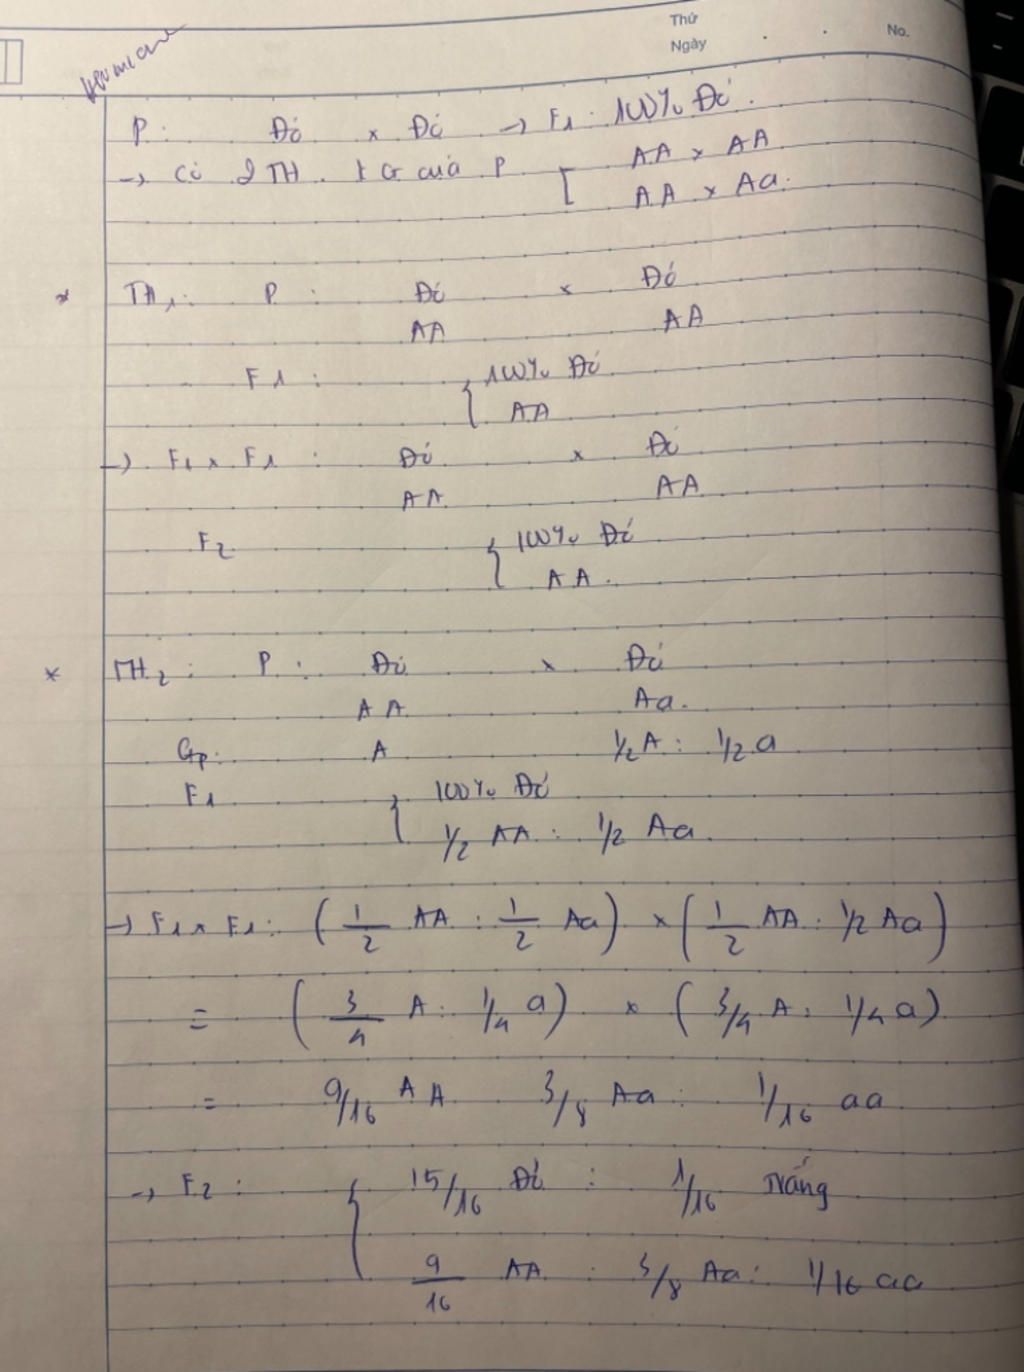 Thứ
Ngày . . No.
P: Đỏ x Đỏ → F1: 100% Đỏ.
→ Có 2 TH. KG của P [ AA x AA
AA x Aa.
* TH1: P: Đỏ x Đỏ
AA AA
F1: { 100% Đỏ
AA
→ F1 x F1: Đỏ x Đỏ
AA AA
F2 { 100% Đỏ
AA.
* TH2: P: Đỏ x Đỏ
AA Aa.
Gp: A 1/2 A: 1/2 a
F1 { 100% Đỏ
1/2 AA : 1/2 Aa
→ F1 x F1: (1/2 AA : 1/2 Aa) x (1/2 AA : 1/2 Aa)
= (3/4 A: 1/4 a) x (3/4 A: 1/4 a)
= 9/16 AA 3/8 Aa: 1/16 aa
→ F2: { 15/16 Đỏ : 1/16 Trắng
9/16 AA : 3/8 Aa: 1/16 aa